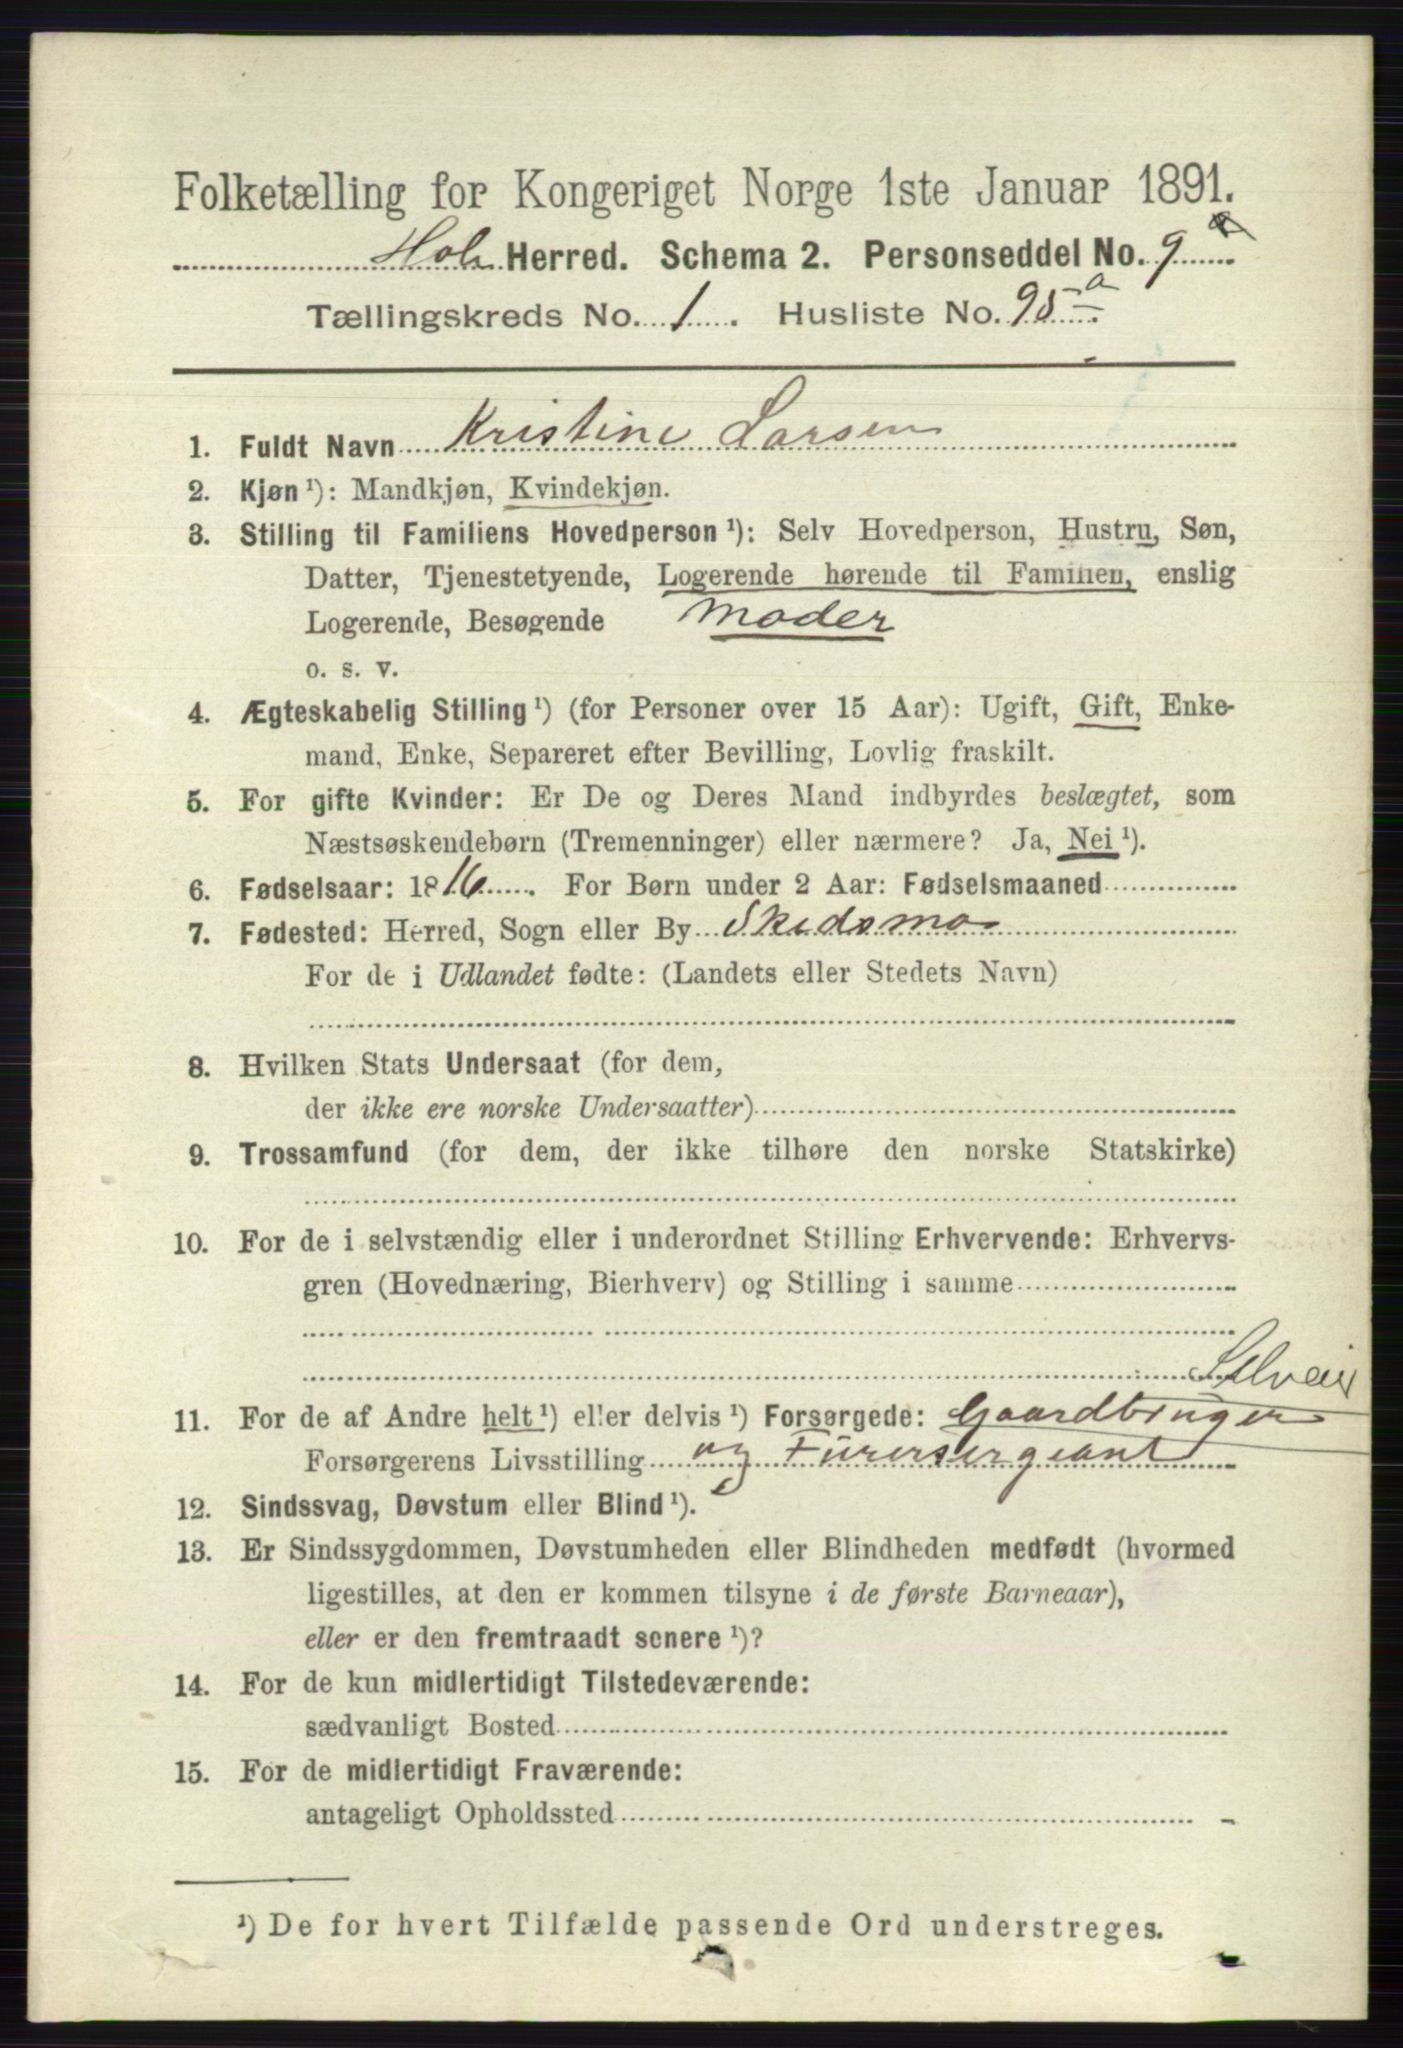 Folketælling for Kongeriget Norge 1ste Januar 1891.
Hole Herred. Schema 2. Personseddel No. 9
Tællingskreds No. 1. Husliste No. 95 a
1. Fuldt Navn Kristine Larsen
2. Kjøn ¹): Mandkjøn, Kvindekjøn.
3. Stilling til Familiens Hovedperson ¹): Selv Hovedperson, Hustru, Søn,
Datter, Tjenestetyende, Logerende hørende til Familien, enslig
Logerende, Besøgende Moder
o. s. v.
4. Ægteskabelig Stilling ¹) (for Personer over 15 Aar): Ugift, Gift, Enke-
mand, Enke, Separeret efter Bevilling, Lovlig fraskilt.
5. For gifte Kvinder: Er De og Deres Mand indbyrdes beslægtet, som
Næstsøskendebørn (Tremenninger) eller nærmere? Ja, Nei ¹).
6. Fødselsaar: 1816. For Børn under 2 Aar: Fødselsmaaned
7. Fødested: Herred, Sogn eller By Skedsmo
For de i Udlandet fødte: (Landets eller Stedets Navn)
8. Hvilken Stats Undersaat (for dem,
der ikke ere norske Undersaatter)
9. Trossamfund (for dem, der ikke tilhøre den norske Statskirke)
10. For de i selvstændig eller i underordnet Stilling Erhvervende: Erhvervs-
gren (Hovednæring, Bierhverv) og Stilling i samme
Selveier
11. For de af Andre helt ¹) eller delvis ¹) Forsørgede: Gaardbruger
Forsørgerens Livsstilling og Furersergeant
12. Sindssvag, Døvstum eller Blind ¹).
13. Er Sindssygdommen, Døvstumheden eller Blindheden medfødt (hvormed
ligestilles, at den er kommen tilsyne i de første Barneaar),
eller er den fremtraadt senere ¹)?
14. For de kun midlertidigt Tilstedeværende:
sædvanligt Bosted
15. For de midlertidigt Fraværende:
antageligt Opholdssted
¹) De for hvert Tilfælde passende Ord understreges.